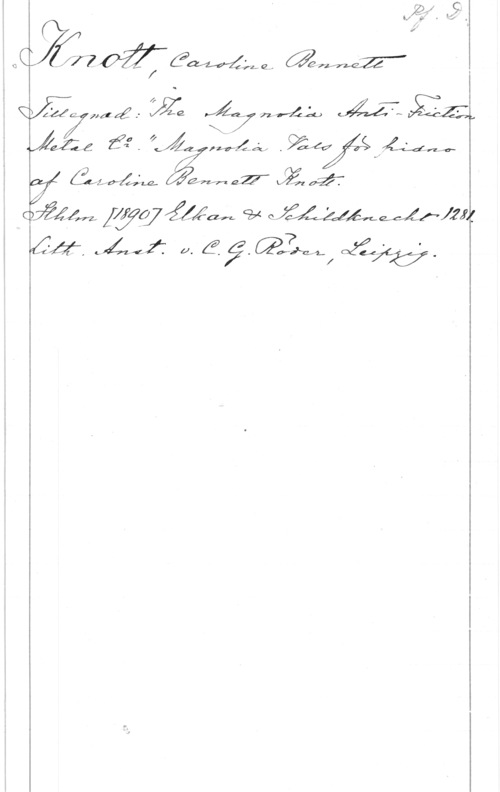 Pf. D.
Knott, Caroline Bennett
Tillegnad: "The Magnolia Anti-Friction
Metal Co." Magnolia. Vals för piano
af Caroline Bennett Knott.
Sthlm [1890] Elkan & Schildknecht 1281.
Lith. Anst. v. C. G. Röder, Leipzig.